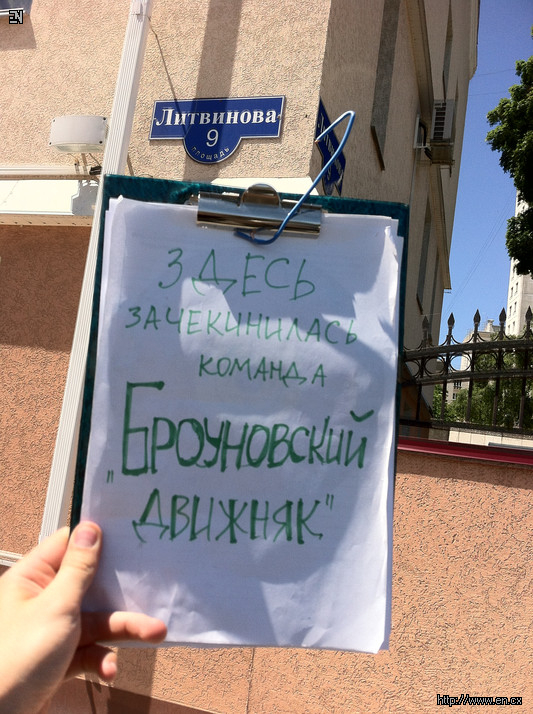 EN
Литвинова
9
площадь
ЗДЕСЬ
ЗАЧЕКИНИЛАСЬ
КОМАНДА
„БРОУНОВСКИЙ
ДВИЖНЯК"
http://www.en.cx